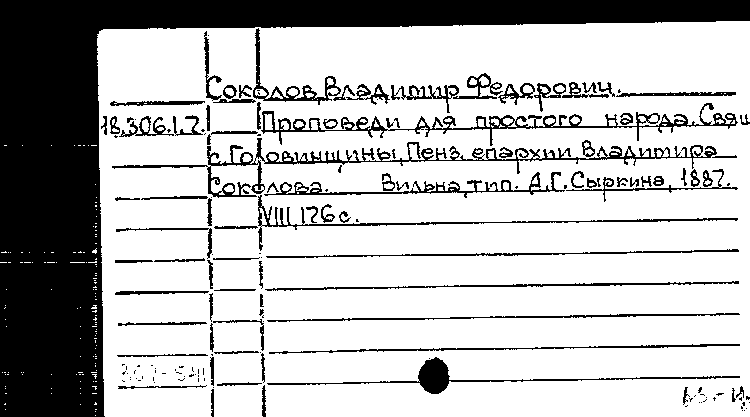 Соколов, Владимир Федорович.
18.306.1.2. Проповеди для простого народа. Свящ
с. Головинщины, Пенз. епархии, Владимира
Соколова. Вильна, тип. А.Г. Сыркина, 1887.
VIII, 176 с.
367-541